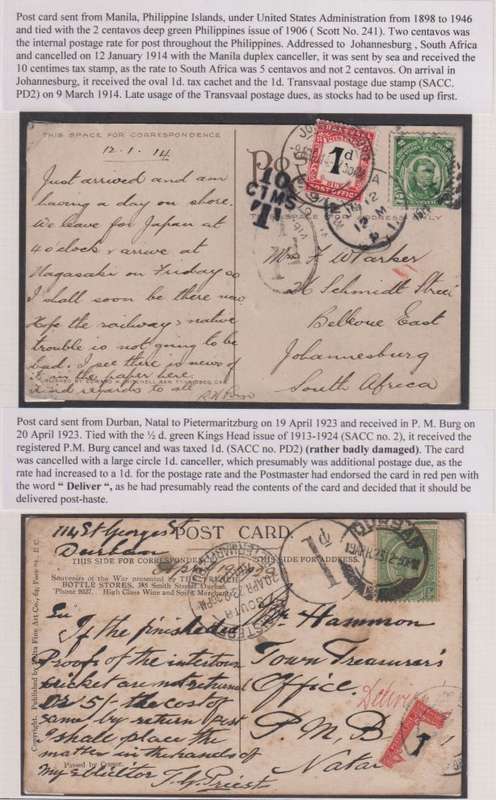 Post card sent from Manila, Philippine Islands, under United States Administration from 1898 to 1946
and tied with the 2 centavos deep green Philippines issue of 1906 ( Scott No. 241). Two centavos was
the internal postage rate for post throughout the Philippines. Addressed to Johannesburg , South Africa
and cancelled on 12 January 1914 with the Manila duplex canceller, it was sent by sea and received the
10 centimes tax stamp, as the rate to South Africa was 5 centavos and not 2 centavos. On arrival in
Johannesburg, it received the oval 1d. tax cachet and the 1d. Transvaal postage due stamp (SACC.
PD2) on 9 March 1914. Late usage of the Transvaal postage dues, as stocks had to be used up first.
THIS SPACE FOR CORRESPONDENCE
12.1.14
Just arrived and am
having a day on shore.
We leave for Japan at
4 o'clock & arrive at
Nagasaki on Friday so
I shall soon be there now
Hope the railway & native
trouble is not going to be
bad. I see there is news of
it in the paper here.
Kind regards to all
Po
10
CTMS
T
1d
POST OFFICE
JAN 12
12 M
Mrs F W Parker
26 Schmidt Street
Bellevue East
Johannesburg
South Africa
Post card sent from Durban, Natal to Pietermaritzburg on 19 April 1923 and received in P. M. Burg on
20 April 1923. Tied with the ½ d. green Kings Head issue of 1913-1924 (SACC no. 2), it received the
registered P.M. Burg cancel and was taxed 1d. (SACC no. PD2) (rather badly damaged). The card
was cancelled with a large circle 1d. canceller, which presumably was additional postage due, as the
rate had increased to a 1d. for the postage rate and the Postmaster had endorsed the card in red pen with
the word “ Deliver “, as he had presumably read the contents of the card and decided that it should be
delivered post-haste.
114 St Georges St
Durban
POST CARD.
THIS SIDE FOR CORRESPONDENCE
THIS SIDE FOR ADDRESS.
Souvenirs of the War presented by
BOTTLE STORES, 385 Smith Street Durban
Phone 2027. High Class Wine and Spirit Merchants
Sir
If the finished
Proofs of the intertown
cricket are not returned
or 5/- the cost of
same by return post
I shall place the
matter in the hands of
my solicitor
T. G. Priest
Passed by Censor.
1d
DURBAN
20 APR 23
Mr. Hammon
Town Treasurer's
Office
P. M. B.
Natal
Deliver